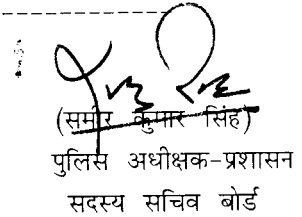 (समीर कुमार सिंह)
पुलिस अधीक्षक-प्रशासन
सदस्य सचिव बोर्ड